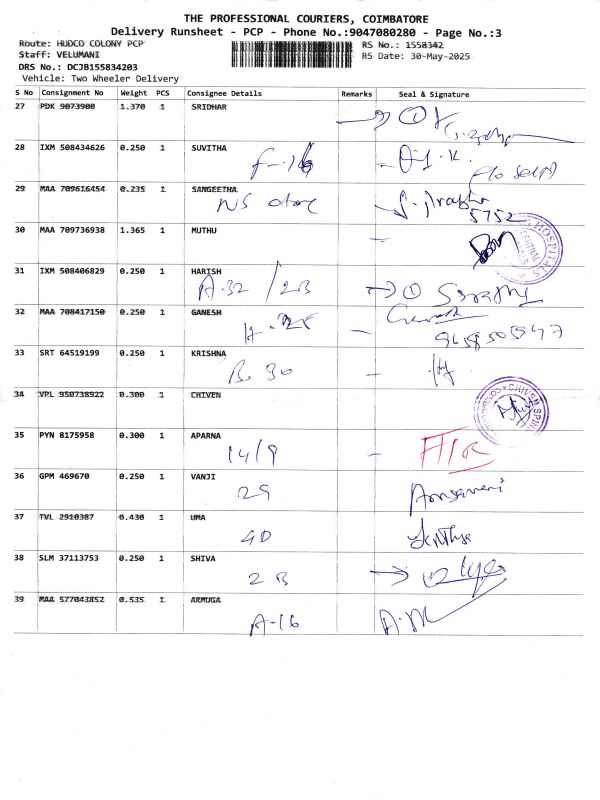 THE PROFESSIONAL COURIERS, COIMBATORE
Delivery Runsheet - PCP - Phone No.:9047080280 - Page No.:3
Route: HUDCO COLONY PCP RS No.: 1558342
Staff: VELUMANI RS Date: 30-May-2025
DRS No.: DCJB155834203
Vehicle: Two Wheeler Delivery
S No Consignment No Weight PCS Consignee Details Remarks Seal & Signature
27 PDK 9073900 1.370 1 SRIDHAR
28 IXM 508434626 0.250 1 SUVITHA
F-16
29 MAA 709616454 0.235 1 SANGEETHA
NS store 5752
30 MAA 709736938 1.365 1 MUTHU
HOSPITALS
31 IXM 508406829 0.250 1 HARISH
A-32 / 2B
32 MAA 708417150 0.250 1 GANESH
33 SRT 64519199 0.250 1 KRISHNA
B. 30
34 VPL 950738922 0.300 1 CHIVEN
CHIVEM SPIN
35 PYN 8175958 0.300 1 APARNA
14/9
36 GPM 469670 0.250 1 VANJI
29
37 TVL 2910387 0.430 1 UMA
4D
38 SLM 37113753 0.250 1 SHIVA
2B
39 MAA 577043852 0.535 1 ARMUGA
A-16